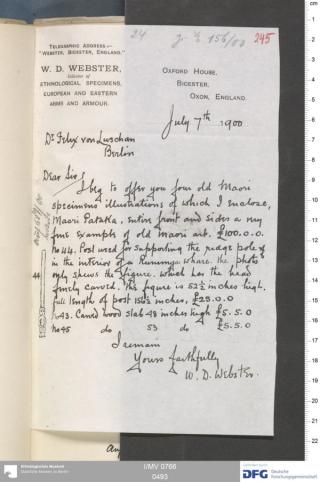 24
J. № 156/00
245
TELEGRAPHIC ADDRESS:—
"WEBSTER, BICESTER, ENGLAND."
W. D. WEBSTER,
Collector of
ETHNOLOGICAL SPECIMENS,
EUROPEAN AND EASTERN
ARMS AND ARMOUR.
OXFORD HOUSE,
BICESTER,
OXON, ENGLAND.
July 7th 1900
Dr Felix von Luschan
Berlin
Dear Sir/
I beg to offer you four old Maori
specimens illustrations of which I enclose,
Maori Pataka, entire front and sides a very
fine example of old Maori art. £100.0.0.
No 44. Post used for supporting the ridge pole of
in the interior of a Rununga whare. the photo
44 only shews the figure. which has the head
finely carved. this figure is 52½ inches high.
full length of post 156½ inches, £25.0.0
No 43. Carved wood slab 49 inches high £5.5.0
no 45 do 53 do £5.5.0
I remain
Yours faithfully
W. D. Webster.
Ethnologisches Museum
Staatliche Museen zu Berlin
I/MV 0766
0493
Gefördert durch
DFG Deutsche
Forschungsgemeinschaft
cm
1
2
3
4
5
6
7
8
9
10
11
12
13
14
15
16
17
18
19
20
21
22